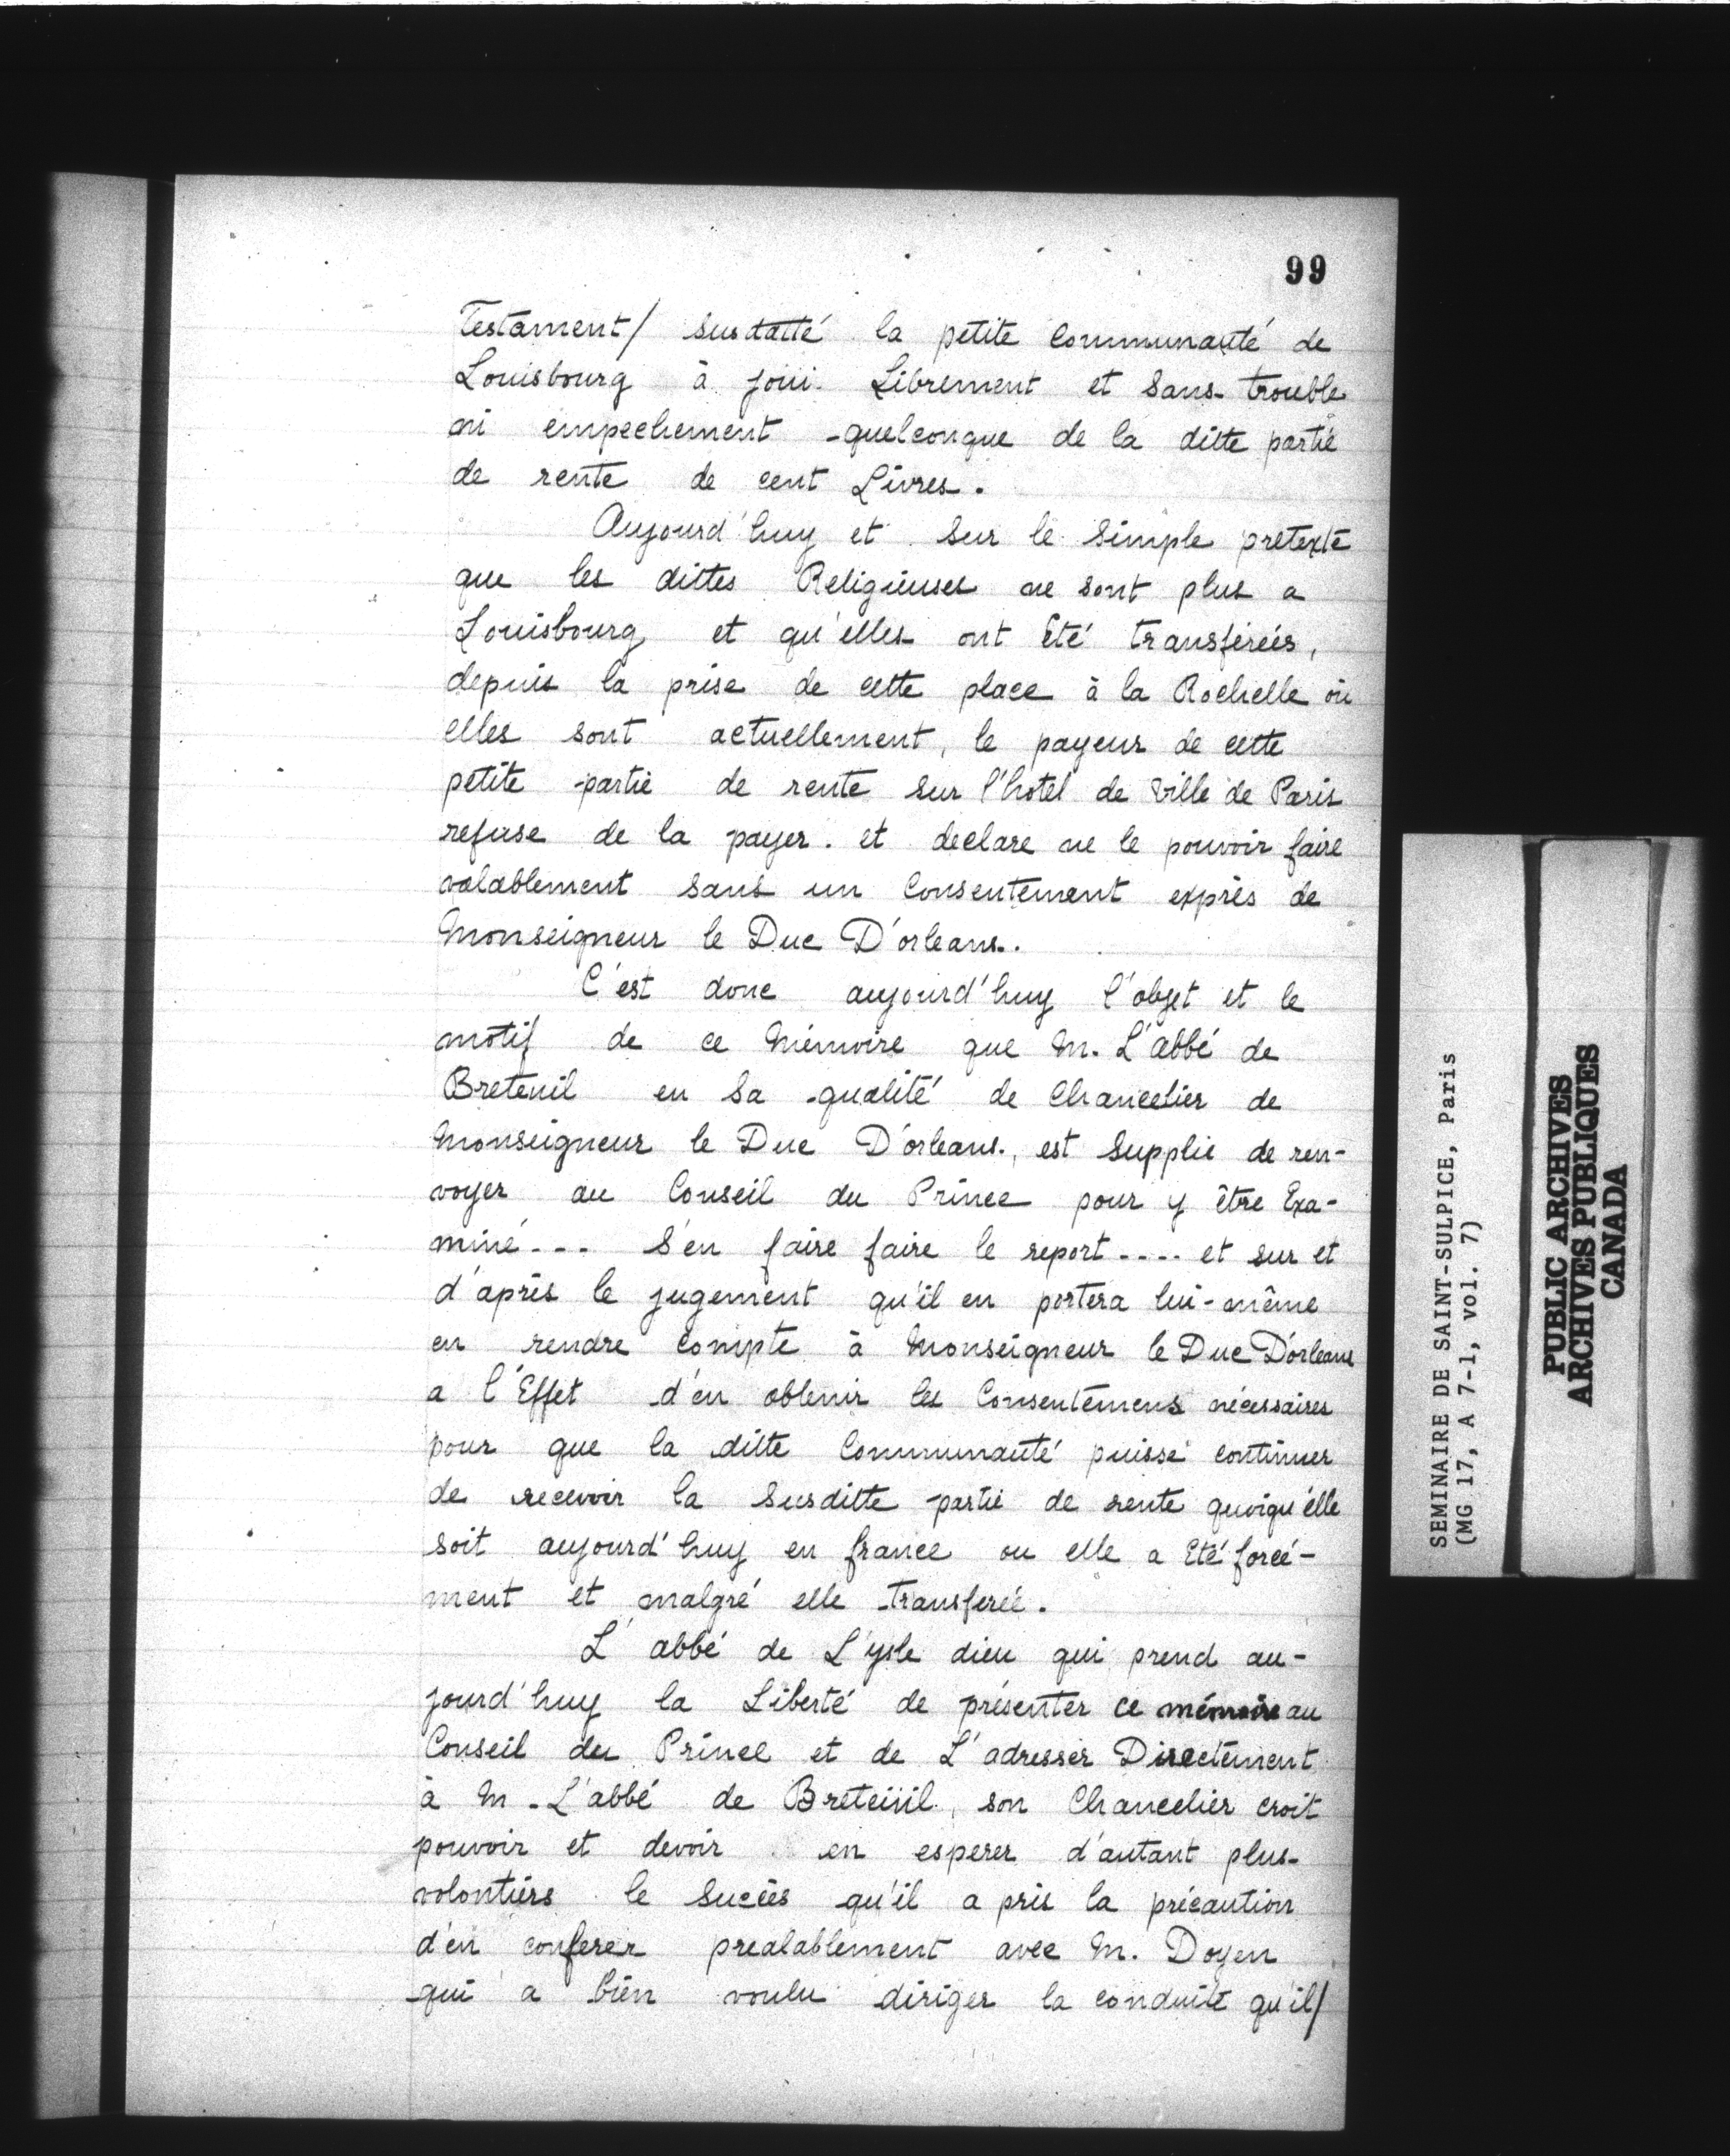 99
Testament/ susdatté la petite Communauté de
Louisbourg à joui Librement et sans trouble
ni empechement quelconque de la ditte partie
de rente de cent Livres.
Aujourd'huy et sur le simple pretexte
que les dittes Religieuses ne sont plus a
Louisbourg et qu'elles ont été transférées,
depuis la prise de cette place à la Rochelle où
elles sont actuellement, le payeur de cette
petite partie de rente sur l'hotel de Ville de Paris
refuse de la payer. et declare ne le pouvoir faire
valablement sans un Consentement exprès de
Monseigneur le Duc D'orleans.
C'est donc aujourd'huy l'objet et le
motif de ce Mémoire que M. L'abbé de
Breteuil en sa qualité de Chancelier de
Monseigneur le Duc D'orleans, est supplié de ren-
voyer au Conseil du Prince pour y être Exa-
miné--- S'en faire faire le report---- et sur et
d'après le jugement qu'il en portera lui-même
en rendre Compte à Monseigneur le Duc D'orleans
a l'Effet d'en obtenir les Consentemens nécessaires
pour que la ditte Communauté puisse continuer
de recevoir la susditte partie de rente quoiqu'elle
soit aujourd'huy en france ou elle a Eté forcé-
ment et malgré elle transferée.
L'abbé de L'ysle dieu qui prend au-
jourd'huy la Liberté de présenter ce mémoire au
Conseil du Prince et de L'adresser Directement
à M. L'abbé de Breteüil, son Chancelier croit
pouvoir et devoir en esperer d'autant plus
volontiers le Succès qu'il a pris la précaution
d'en conferer prealablement avec M. Doyen
qui a bien voulu diriger la conduite qu'il/
SEMINAIRE DE SAINT-SULPICE, Paris
(MG 17, A 7-1, vol. 7)
PUBLIC ARCHIVES
ARCHIVES PUBLIQUES
CANADA